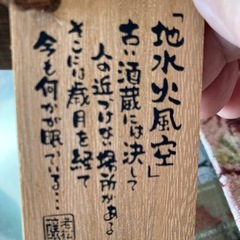 「地水火風空」
古い酒蔵には決して
人の近づけない場所がある
そこには歳月を経て
今も何かが眠っている…